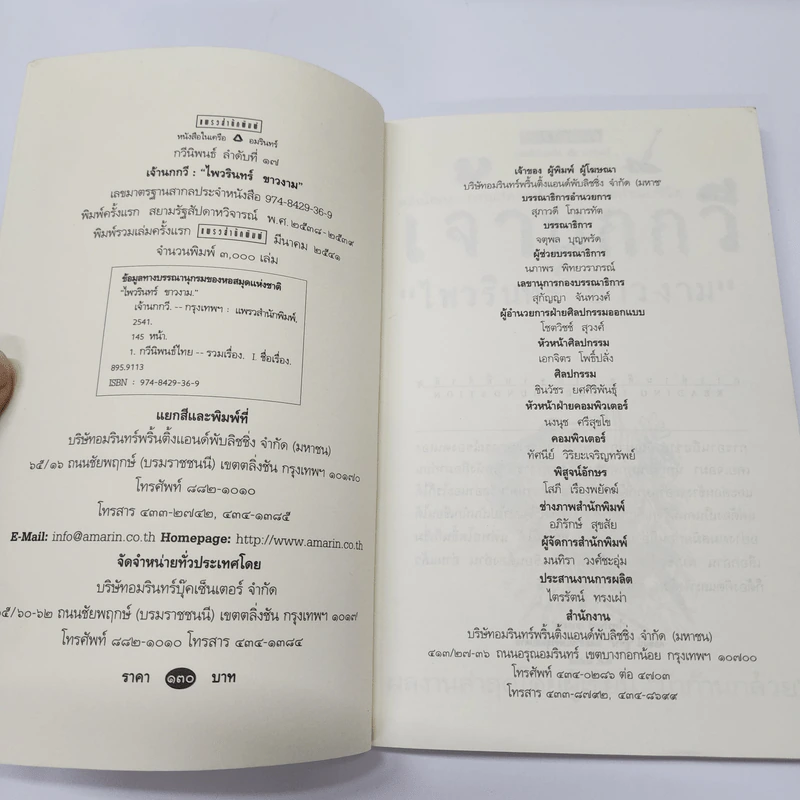 แพรวสำนักพิมพ์
หนังสือในเครือ อมรินทร์
กวีนิพนธ์ ลำดับที่ ๑๗
เจ้านกกวี : "ไพวรินทร์ ขาวงาม"
เลขมาตรฐานสากลประจำหนังสือ 974-8429-36-9
พิมพ์ครั้งแรก สยามรัฐสัปดาหวิจารณ์ พ.ศ. ๒๕๓๘-๒๕๓๙
พิมพ์รวมเล่มครั้งแรก แพรวสำนักพิมพ์ มีนาคม ๒๕๔๑
จำนวนพิมพ์ ๓,๐๐๐ เล่ม
ข้อมูลทางบรรณานุกรมของหอสมุดแห่งชาติ
"ไพวรินทร์ ขาวงาม."
เจ้านกกวี. -- กรุงเทพฯ : แพรวสำนักพิมพ์,
2541.
145 หน้า.
1. กวีนิพนธ์ไทย -- รวมเรื่อง. I. ชื่อเรื่อง.
895.9113
ISBN : 974-8429-36-9
แยกสีและพิมพ์ที่
บริษัทอมรินทร์พริ้นติ้งแอนด์พับลิชชิ่ง จำกัด (มหาชน)
๖๕/๑๖ ถนนชัยพฤกษ์ (บรมราชชนนี) เขตตลิ่งชัน กรุงเทพฯ ๑๐๑๗๐
โทรศัพท์ ๘๘๒-๑๐๑๐
โทรสาร ๔๓๓-๒๗๔๒, ๔๓๔-๑๓๘๕
E-Mail: info@amarin.co.th Homepage: http://www.amarin.co.th
จัดจำหน่ายทั่วประเทศโดย
บริษัทอมรินทร์บุ๊คเซ็นเตอร์ จำกัด
๖๕/๖๐-๖๒ ถนนชัยพฤกษ์ (บรมราชชนนี) เขตตลิ่งชัน กรุงเทพฯ ๑๐๑๗
โทรศัพท์ ๘๘๒-๑๐๑๐ โทรสาร ๔๓๔-๑๓๘๔
ราคา ๑๓๐ บาท
เจ้าของ ผู้พิมพ์ ผู้โฆษณา
บริษัทอมรินทร์พริ้นติ้งแอนด์พับลิชชิ่ง จำกัด (มหาช
บรรณาธิการอำนวยการ
สุภาวดี โกมารทัต
บรรณาธิการ
จตุพล บุญพรัด
ผู้ช่วยบรรณาธิการ
นภาพร พิทยวราภรณ์
เลขานุการกองบรรณาธิการ
สุกัญญา จันทวงศ์
ผู้อำนวยการฝ่ายศิลปกรรมออกแบบ
โชตวิชช์ สุวงศ์
หัวหน้าศิลปกรรม
เอกจิตร โพธิ์ปลั่ง
ศิลปกรรม
ชินวัชร ยศศิริพันธุ์
หัวหน้าฝ่ายคอมพิวเตอร์
นงนุช ศรีสุขโข
คอมพิวเตอร์
ทัศนีย์ วิริยะเจริญทรัพย์
พิสูจน์อักษร
โสภี เรืองพยัคฆ์
ช่างภาพสำนักพิมพ์
อภิรักษ์ สุขสัย
ผู้จัดการสำนักพิมพ์
มนทิรา วงศ์ชะอุ่ม
ประสานงานการผลิต
ไตรรัตน์ ทรงเผ่า
สำนักงาน
บริษัทอมรินทร์พริ้นติ้งแอนด์พับลิชชิ่ง จำกัด (มหาชน)
๔๑๓/๒๗-๓๖ ถนนอรุณอมรินทร์ เขตบางกอกน้อย กรุงเทพฯ ๑๐๗๐๐
โทรศัพท์ ๔๓๔-๐๒๘๖ ต่อ ๔๗๐๓
โทรสาร ๔๓๓-๘๗๙๒, ๔๓๔-๘๖๙๙